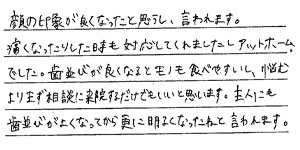 顔の印象が良くなったと思うし、言われます。
痛くなったりした時も対応してくれましたしアットホーム
でした。歯並びが良くなるとモノも食べやすいし、悩む
よりまず相談に来院するだけでもいいと思います。主人にも
歯並びがよくなってから更に明るくなったねと言われます。